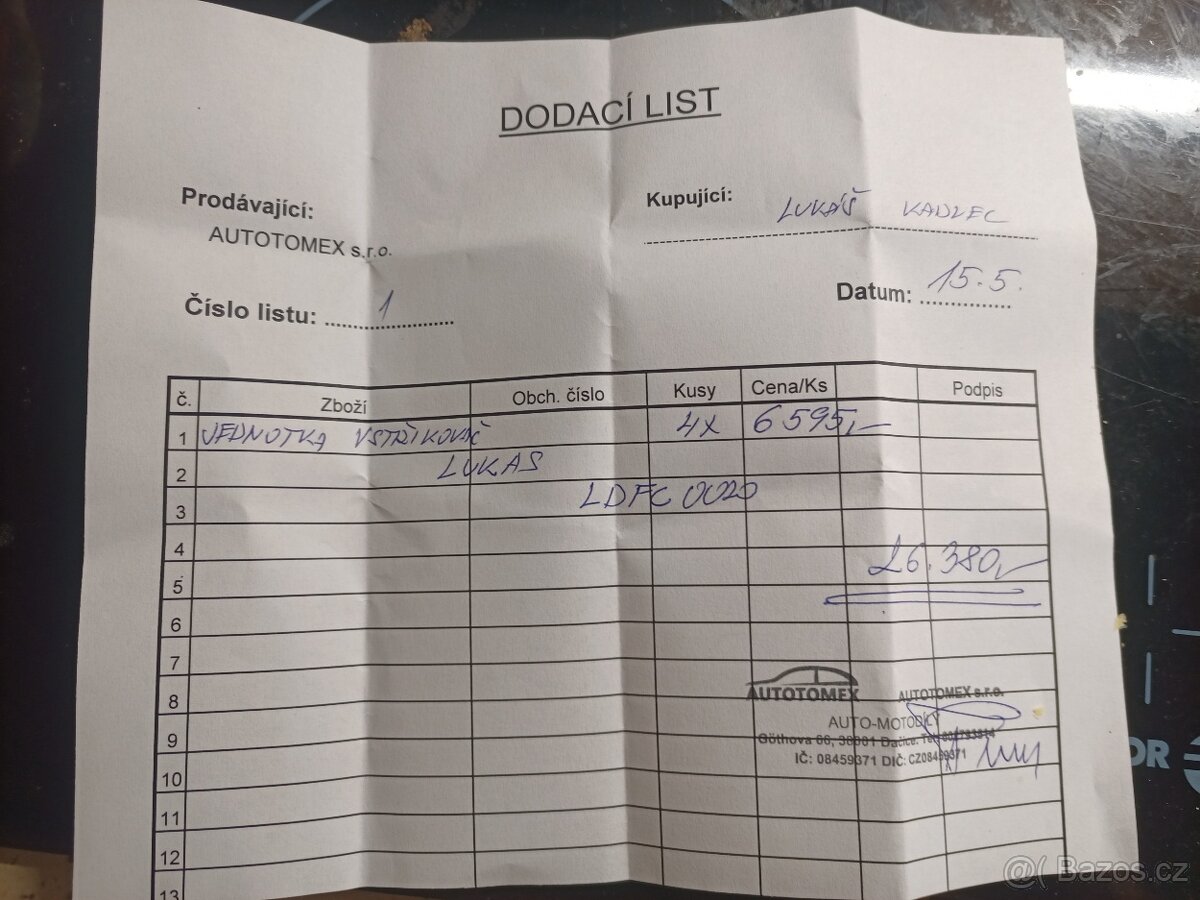 DODACÍ LIST
Prodávající:
AUTOTOMEX s.r.o.
Kupující: LUKÁŠ KADLEC
Číslo listu: 1
Datum: 15.5.
č. Zboží Obch. číslo Kusy Cena/Ks Podpis
1 JEDNOTKA VSTŘIKOVAČ 4x 6595,-
2 LUKAS
3 LDFC 0020
4
26.380,-
5
6
7
8
AUTOTOMEX AUTOTOMEX s.r.o.
AUTO-MOTODÍLY
9
Göthova 66, 38081 Dačice. Tel:
IČ: 08459371 DIČ: CZ08459371
10
11
12
13
DR
@( Bazos.cz